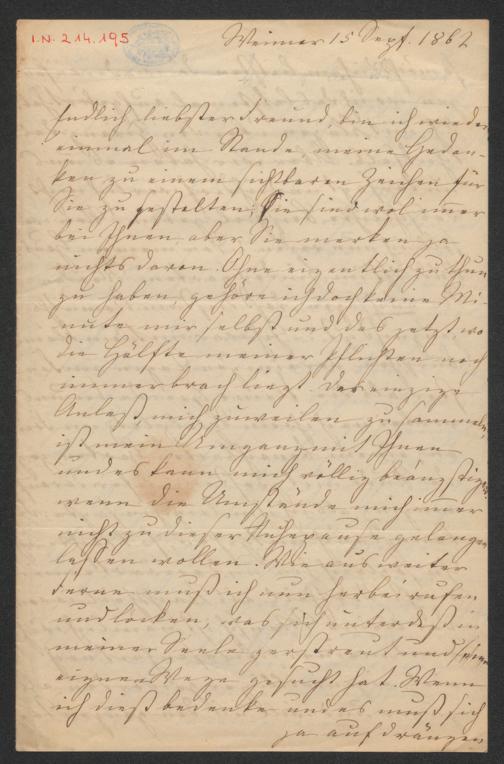 I.N. 214.195
Weimar 15 Sept. 1862
Endlich, liebster Freund, bin ich wieder
einmal im Stande, meine Gedan-
ken zu einem sichtbaren Zeichen für
Sie zu gestalten; sie sind wol immer
bei Ihnen aber Sie merken ja
nichts davon. Ohne eigentlich zu thun
zu haben, gehöre ich doch keine Mi-
nute mir selbst und das jetzt, wo
die Hälfte meiner Pflichten noch
immer brach liegt. Der einzige
Anlaß, mich zuweilen zu sammeln,
ist mein Umgang mit Ihnen
und es kann mich völlig beängstigen,
wenn die Umstände mich immer
nicht zu dieser Ruhepause gelangen
lassen wollen. Wie aus weiter
Ferne muß ich nun herbeirufen
und locken, was sich unterdeß in
meiner Seele zerstreut und seine
eignen Wege gesucht hat. Wenn
ich dieß bedenke und es muß sich
ja aufdrängen